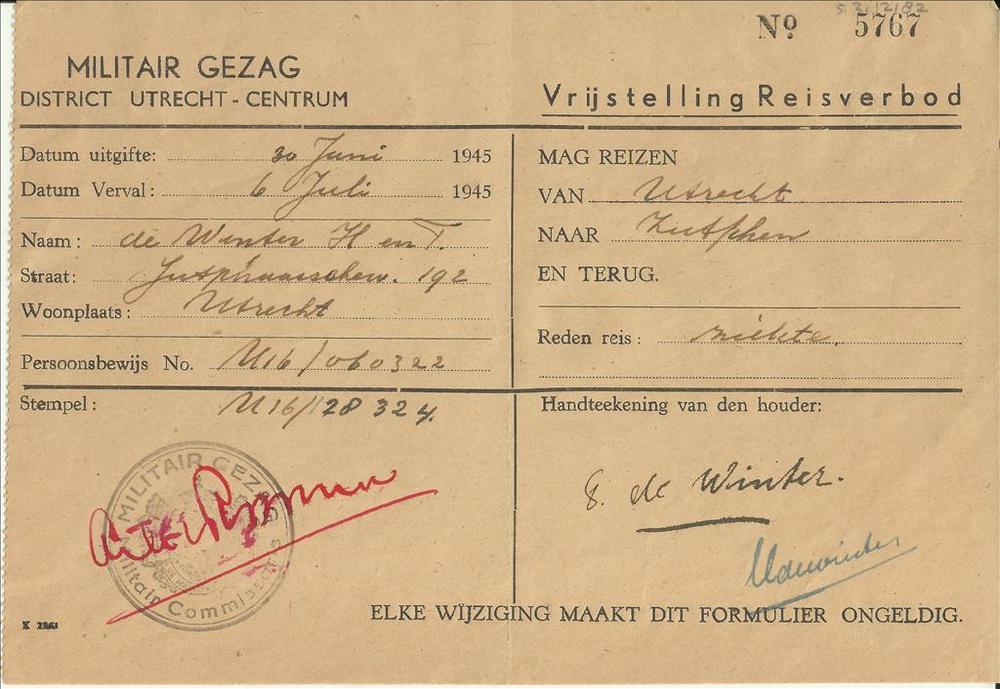 S 31/2/82
Nº 5767
MILITAIR GEZAG
DISTRICT UTRECHT - CENTRUM
Vrijstelling Reisverbod
Datum uitgifte: 30 Juni 1945
Datum Verval: 6 Juli 1945
Naam: de Winter H en T.
Straat: Jutphaaschew. 192
Woonplaats: Utrecht
Persoonsbewijs No. U16/060322
MAG REIZEN
VAN Utrecht
NAAR Zutphen
EN TERUG.
Reden reis: ziekte.
Stempel: U16/128324.
MILITAIR GEZAG
Militair Commissaris
Handteekening van den houder:
de Winter.
ELKE WIJZIGING MAAKT DIT FORMULIER ONGELDIG.